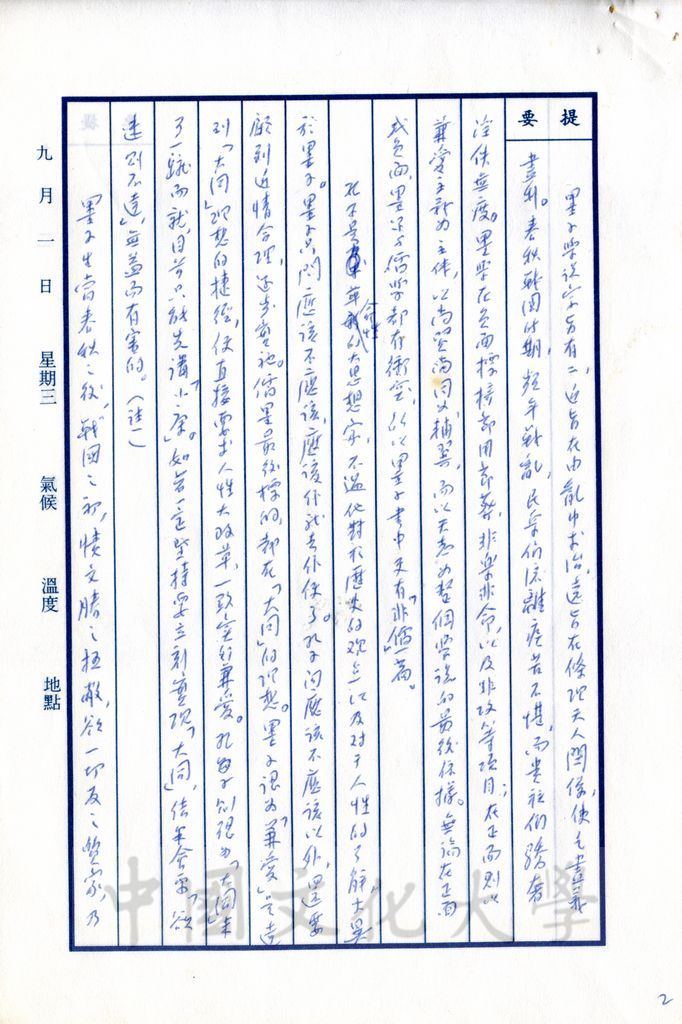 提要
墨子學說宗旨有二,近旨在由亂中求治,遠旨在條理天人關係,使之盡義
盡利。春秋戰國時期,頻年戰亂,民眾們流離疾苦不堪,而貴族們驕奢
淫佚無度。墨學在負面標榜節用節葬,非樂非命,以及非攻等項目;在正面則以
兼愛主義為主体,以尚賢尚同為輔翼,而以天志為整個學說的最後依據。無論在正面
或負面,墨學與儒學都有衝突,所以墨子書中更有「非儒」篇。
孔子是革命性的大思想家,不過他對於歷史的观点以及对于人性的了解,大異
於墨子。墨子只問應該不應該,應該作就去作便了。孔子問應該不應該以外,還要
顧到近情合理,逐步實施。儒墨最後標的,都在「大同」的理想。墨子認為「兼愛」是達
到「大同」理想的捷徑,便直接要求人性大改革,一致实行兼愛。孔子則認為「大同」未
了一蹴而就,目前只能先講「小康」。如若一定堅持要立刻實現「大同」,結果會要「欲
速則不達」,無益而有害的。(註一)
墨子生當春秋之後,戰國之初,憤文勝之極敝,欲一切反之質家,乃
九月一日 星期三 氣候 溫度 地點
中國文化大學
2